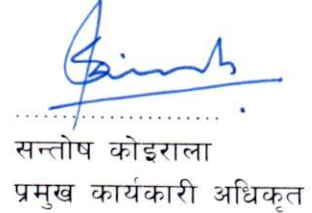 सन्तोष कोइराला
प्रमुख कार्यकारी अधिकृत